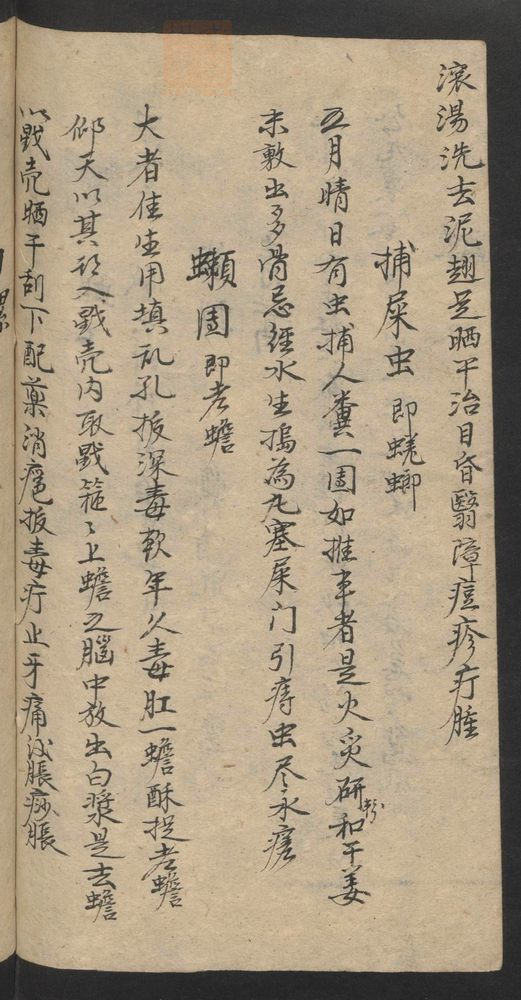 滚湯洗去泥翅足晒干治目昏翳障痘疹疔腫
捕屎虫 即蜣螂
五月晴日有虫捕人糞一團如推車者是火炙研粉和干姜
末敷出多骨忌經水生搗為丸塞屎门引痔虫尽永瘥
蠏團 即老蟾
大者佳生用填乱孔扳深毒軟年久毒肛一蟾酥捉老蟾
仰天以其於入戥壳内取戥箍々上蟾之腦中放出白漿是去蟾
以戥壳晒干刮下配藥消癍扳毒疔止牙痛泌脹痧脹